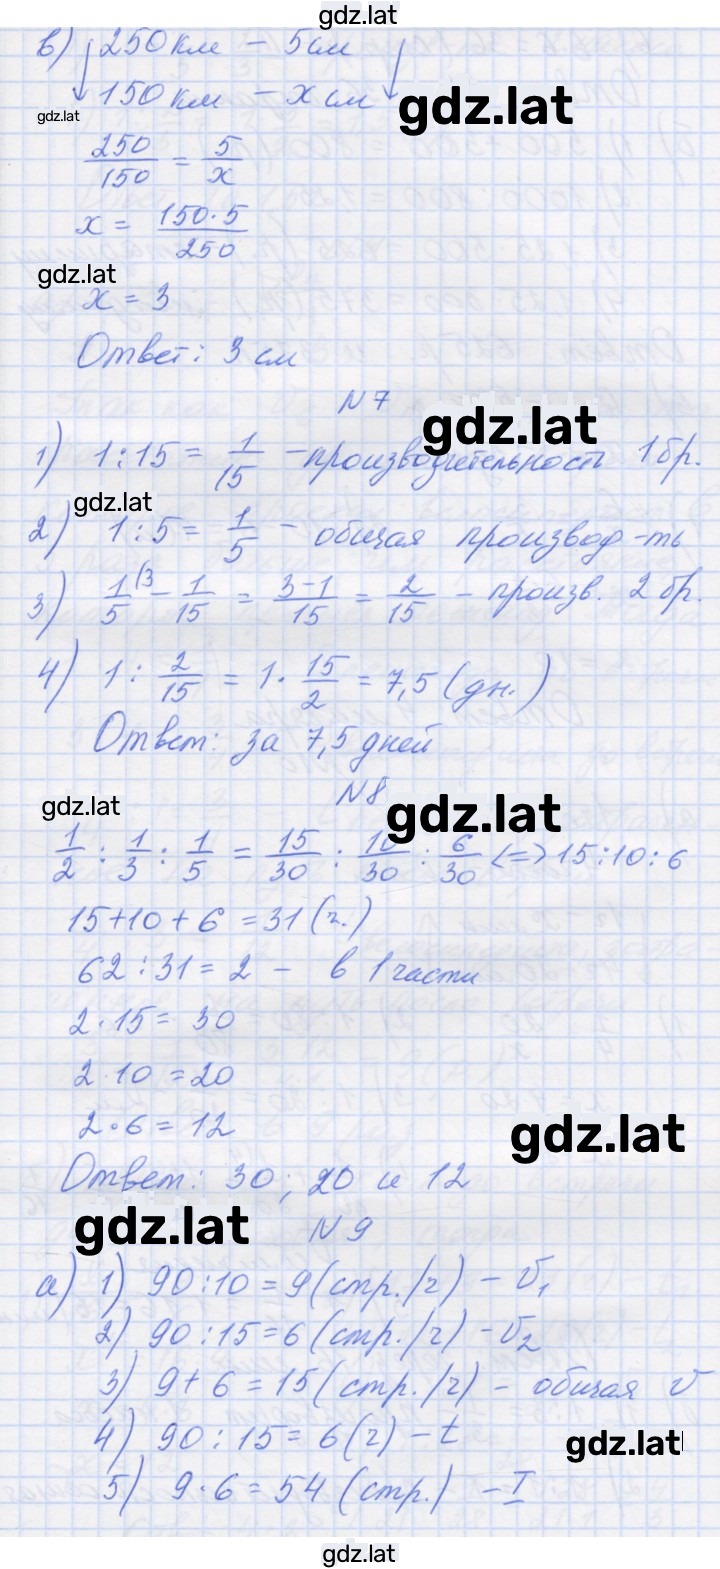 gdz.lat
в) 250 км – 5 см
150 км – x см
gdz.lat
gdz.lat
250/150 = 5/x
x = 150·5/250
gdz.lat
x = 3
Ответ: 3 см
N 7
gdz.lat
1) 1:15 = 1/15 – производительность 1 бр.
gdz.lat
2) 1:5 = 1/5 – общая производ-ть
3) 1/5 (3 – 1/15 = 3-1/15 = 2/15 – произв. 2 бр.
4) 1 : 2/15 = 1 · 15/2 = 7,5 (дн.)
Ответ: за 7,5 дней
N 8
gdz.lat
gdz.lat
1/2 : 1/3 : 1/5 = 15/30 : 10/30 : 6/30 <=> 15:10:6
15+10+6 = 31 (ч.)
62:31 = 2 – в 1 части
2·15 = 30
2·10 = 20
2·6 = 12
gdz.lat
Ответ: 30; 20 и 12
gdz.lat
N 9
а) 1) 90:10 = 9 (стр./ч) – v₁
2) 90:15 = 6 (стр./ч) – v₂
3) 9+6 = 15 (стр./ч) – общая v
4) 90:15 = 6 (ч) – t
gdz.lat
5) 9·6 = 54 (стр.) – I
gdz.lat